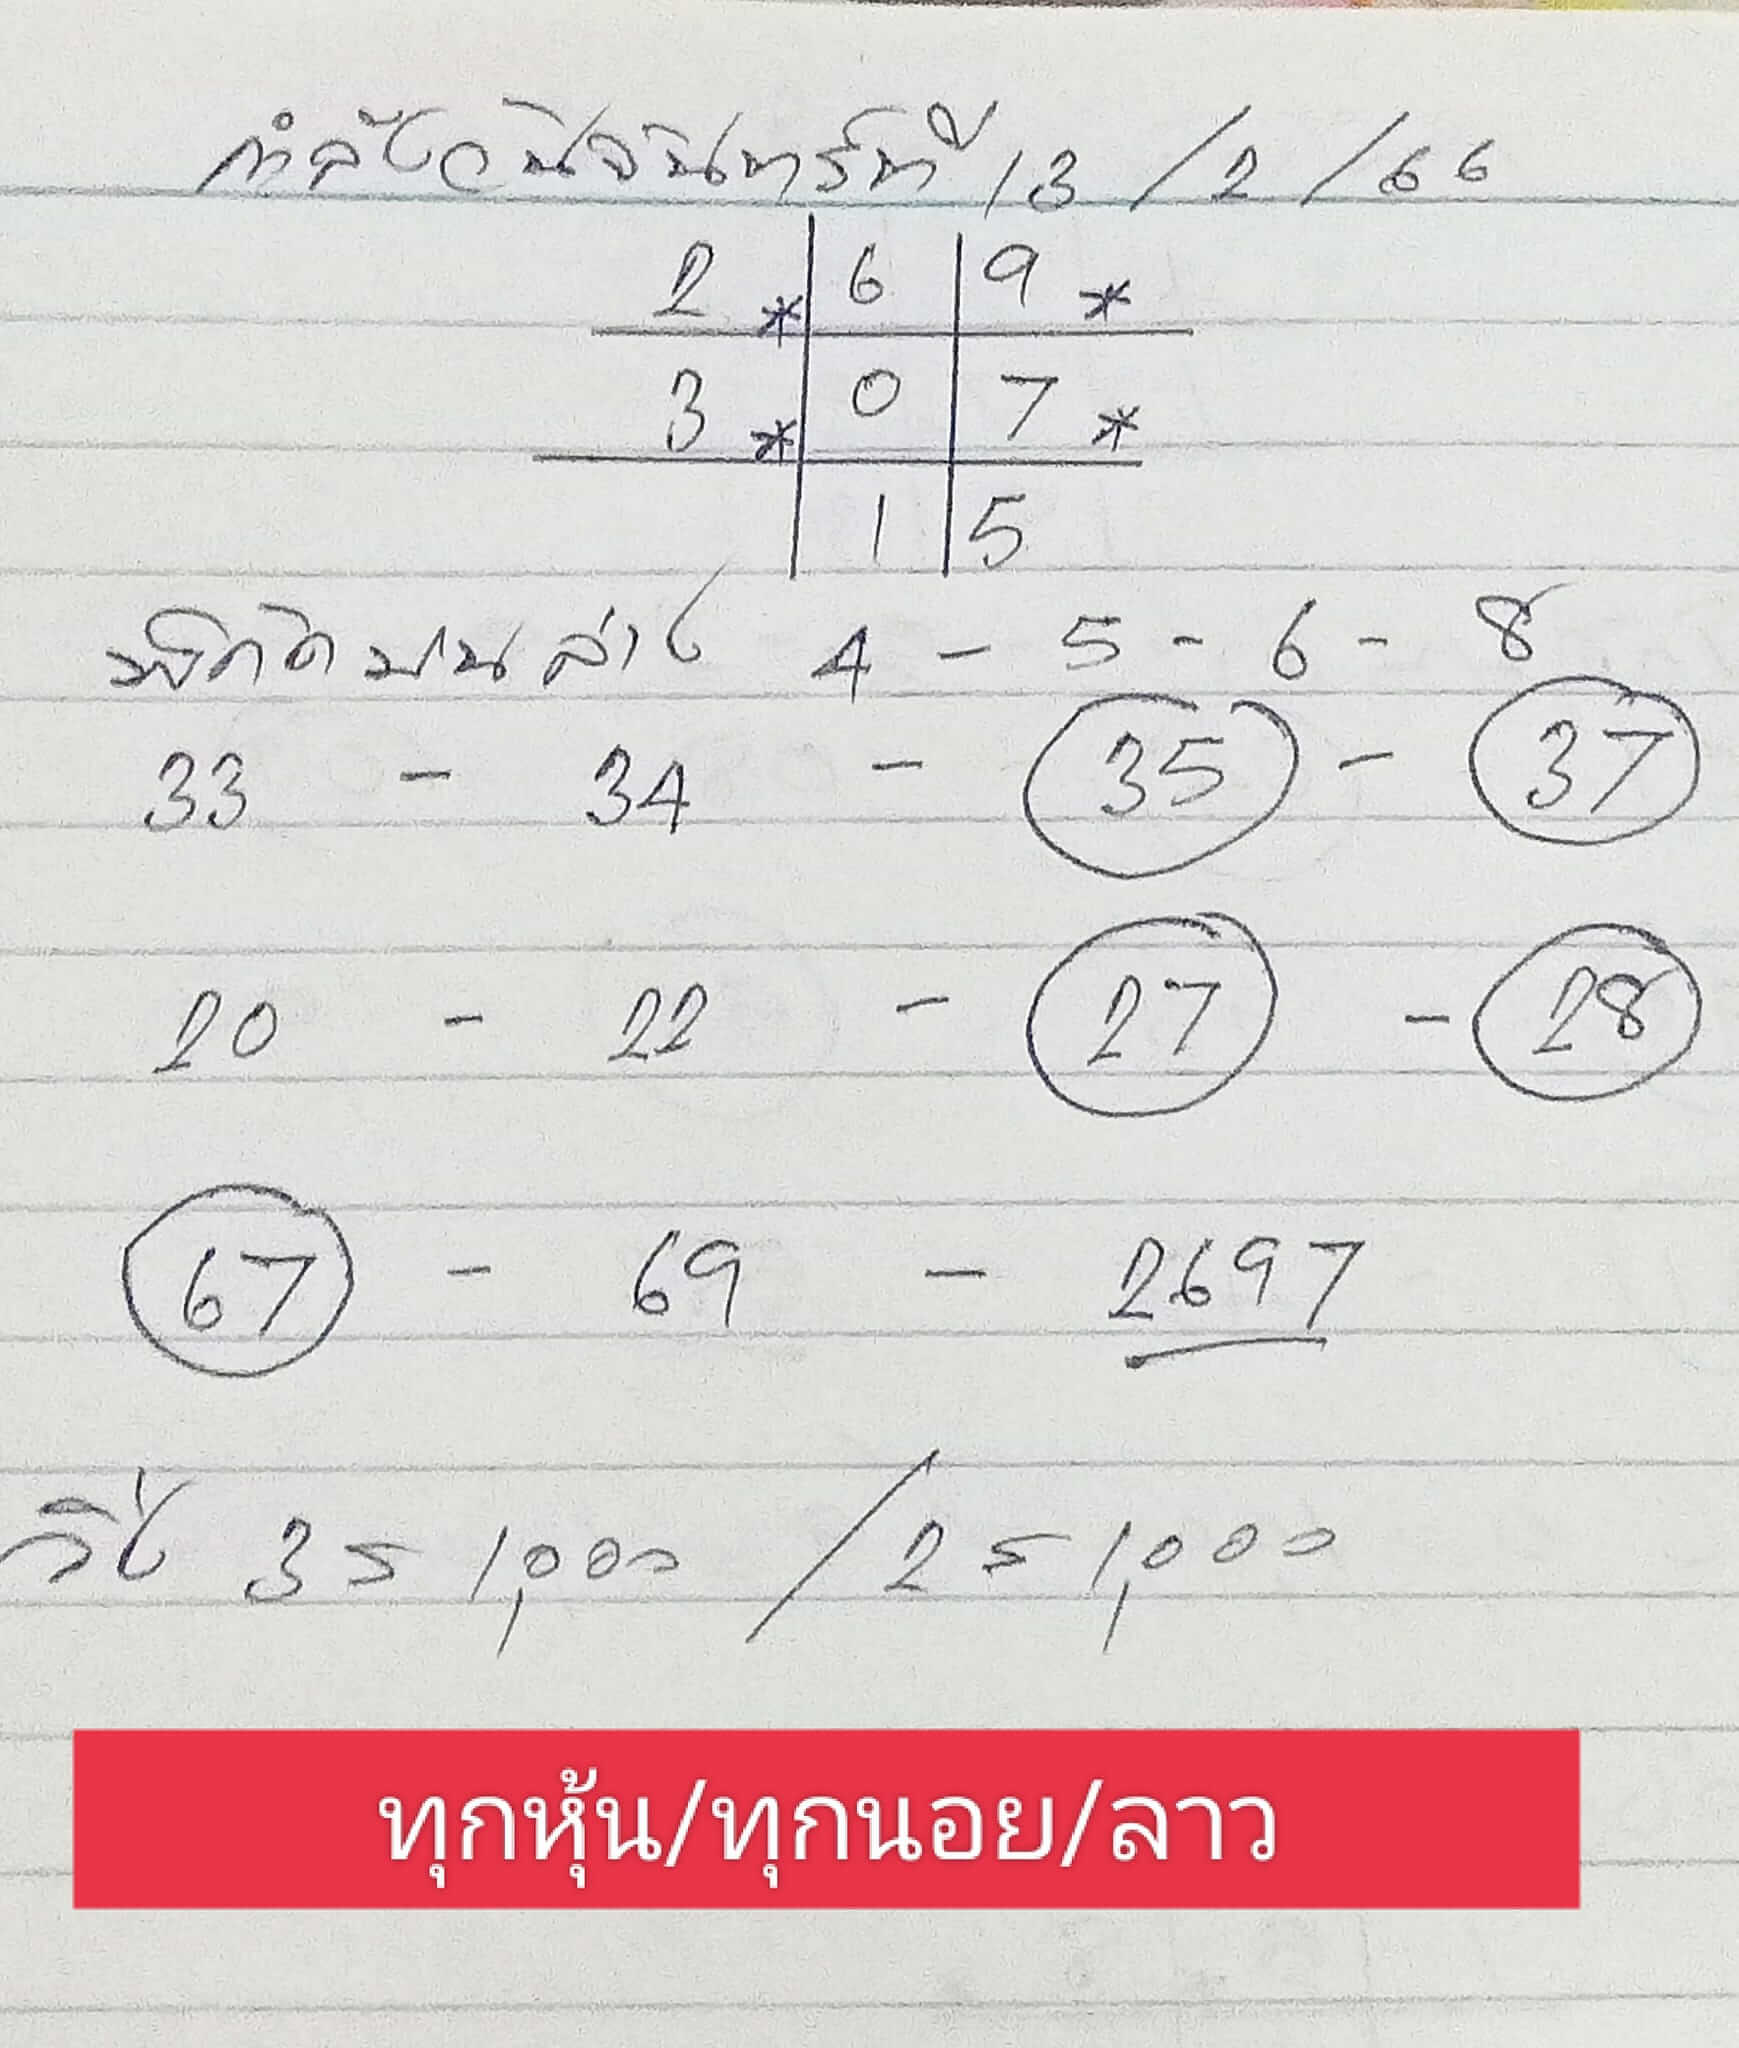 กำลังวันจันทร์ที่ 13/2/66
2 * 6 9 *
3 * 0 7 *
1 5
พิกัดบนล่าง 4 - 5 - 6 - 8
33 - 34 - 35 - 37
20 - 22 - 27 - 28
67 - 69 - 2697
วิ่ง 3 = 1,000 / 2 = 1,000
ทุกหุ้น/ทุกนอย/ลาว